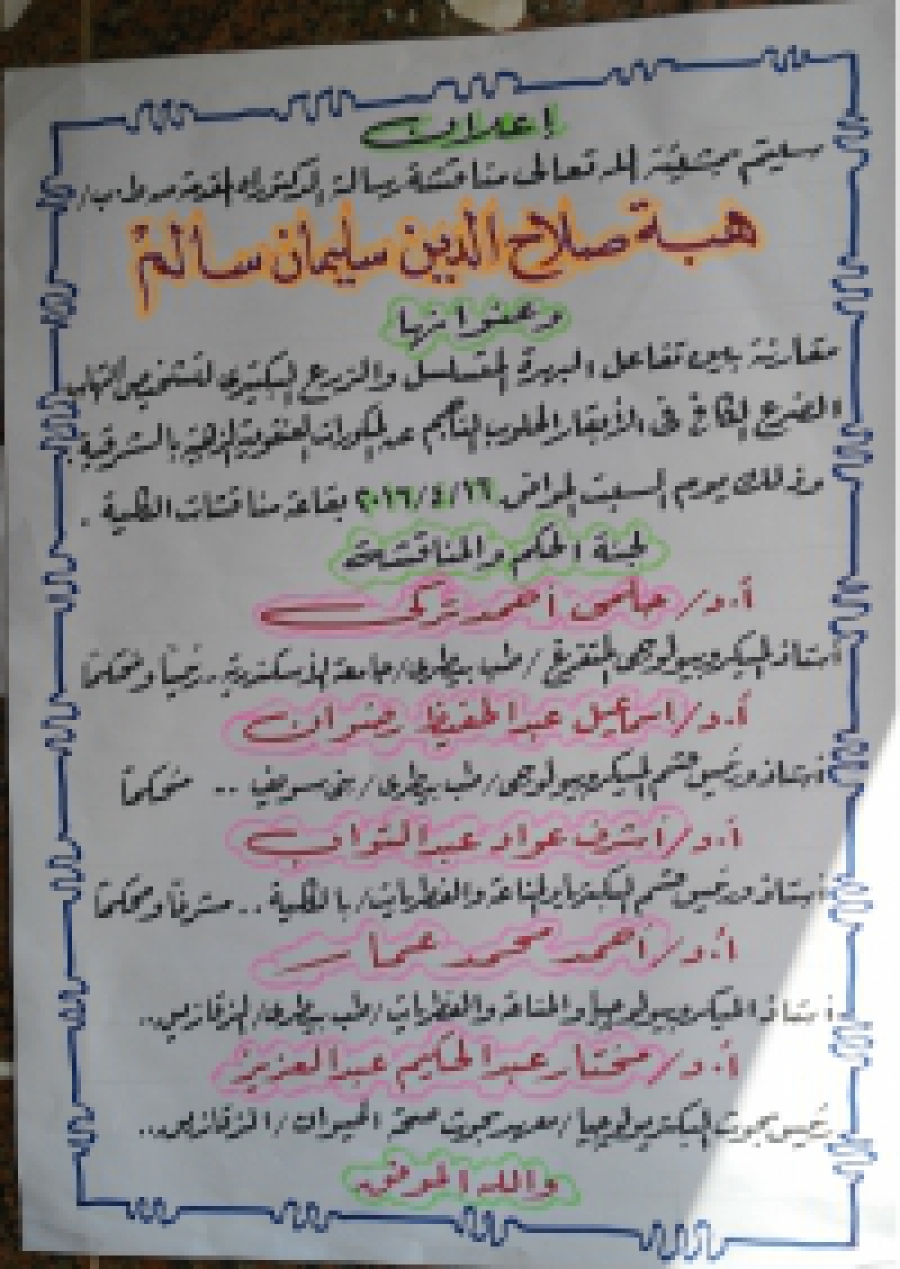 إعلان
سيتم بمشيئة الله تعالى مناقشة رسالة الدكتوراه المقدمة من ط.ب/
هبة صلاح الدين سليمان سالم
وعنوانها
مقارنة بين تفاعل البلمرة المتسلسل والزرع البكتيرى لتشخيص التهاب
الضرع فى الأبقار الحلوب الناجم عن المكورات العنقودية الذهبية بالشرقية.
وذلك يوم السبت الموافق ٢٠١٦/٤/١٦ بقاعة مناقشات الكلية .
لجنة الحكم والمناقشة
أ.د/ حلمى أحمد تركى
أستاذ الميكروبيولوجى المتفرغ / طب بيطرى / جامعة الأسكندرية .. رئيساً ومحكماً
أ.د/ اسماعيل عبد الحفيظ رضوان
أستاذ ورئيس قسم الميكروبيولوجى / طب بيطرى / بنى سويف .. محكماً
أ.د/ أشرف عواد عبد التواب
أستاذ ورئيس قسم البكتريا والمناعة والفطريات / بالكلية .. مشرفاً ومحكماً
أ.د/ أحمد محمد عمار
أستاذ الميكروبيولوجيا والمناعة والفطريات / طب بيطرى / الزقازيق..
أ.د/ مختار عبد الحكيم عبد العزيز
رئيس بحوث البكتريولوجيا / معهد بحوث صحة الحيوان / الزقازيق..
والله الموفق